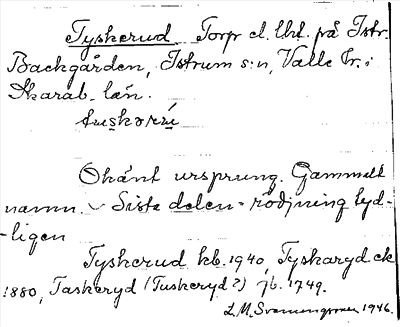 Tyskerud Torp el. lht. på Istr.
Backgården, Istrum s:n, Valle hr. i
Skarab. län.
Okänt ursprung. Gammalt
namn. Sista delen = rödjning tyd-
-ligen
Tyskerud kb. 1940, Tyskaryd ek
1880, Taskeryd (Tuskeryd?) jb. 1749.
L.M. 1946.